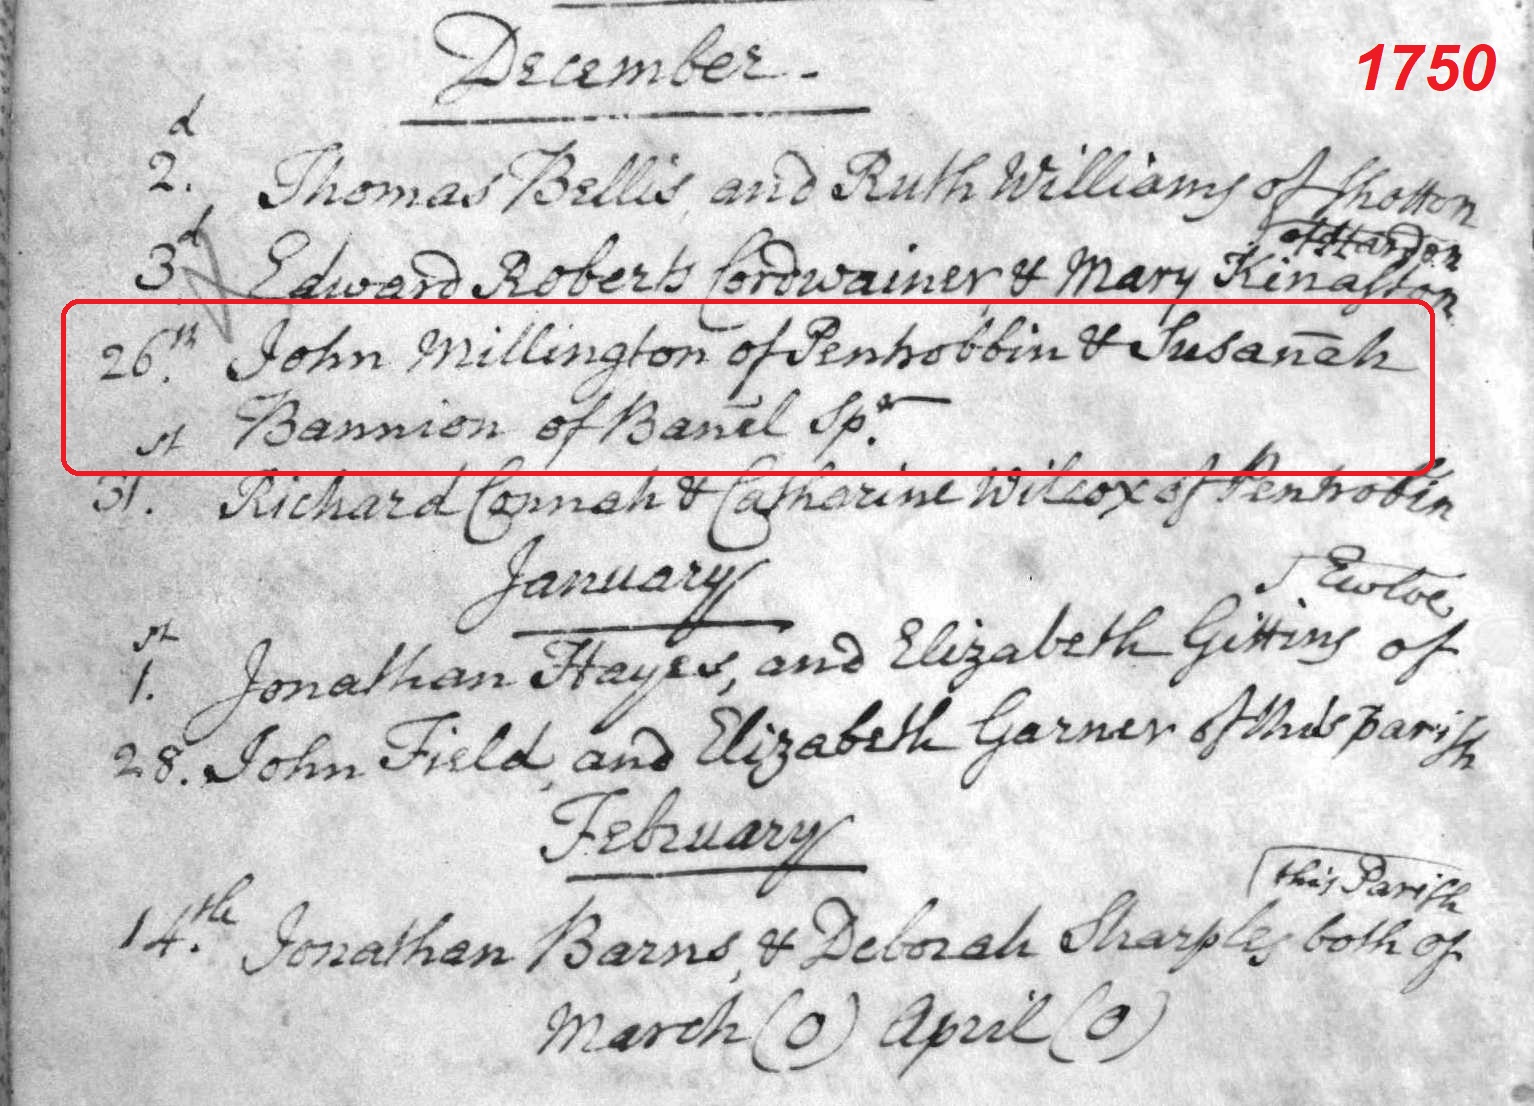 1750
December -
2.d Thomas Bellis, and Ruth Williams of Shotton
of Hardon
3d Edward Roberts Cordwainer & Mary Kinaston
26th. John Millington of Penhobbin & Susanah
Bannion of Banel Spr.
31.st Richard Connah & Catharine Wilcox of Penhobin
January
Ewloe
1.st Jonathan Hayes, and Elizabeth Gittins of
28. John Field, and Elizabeth Garner of this parish
February
this Parish
14.th Jonathan Barns, & Deborah Sharples both of
March (0) April (0)